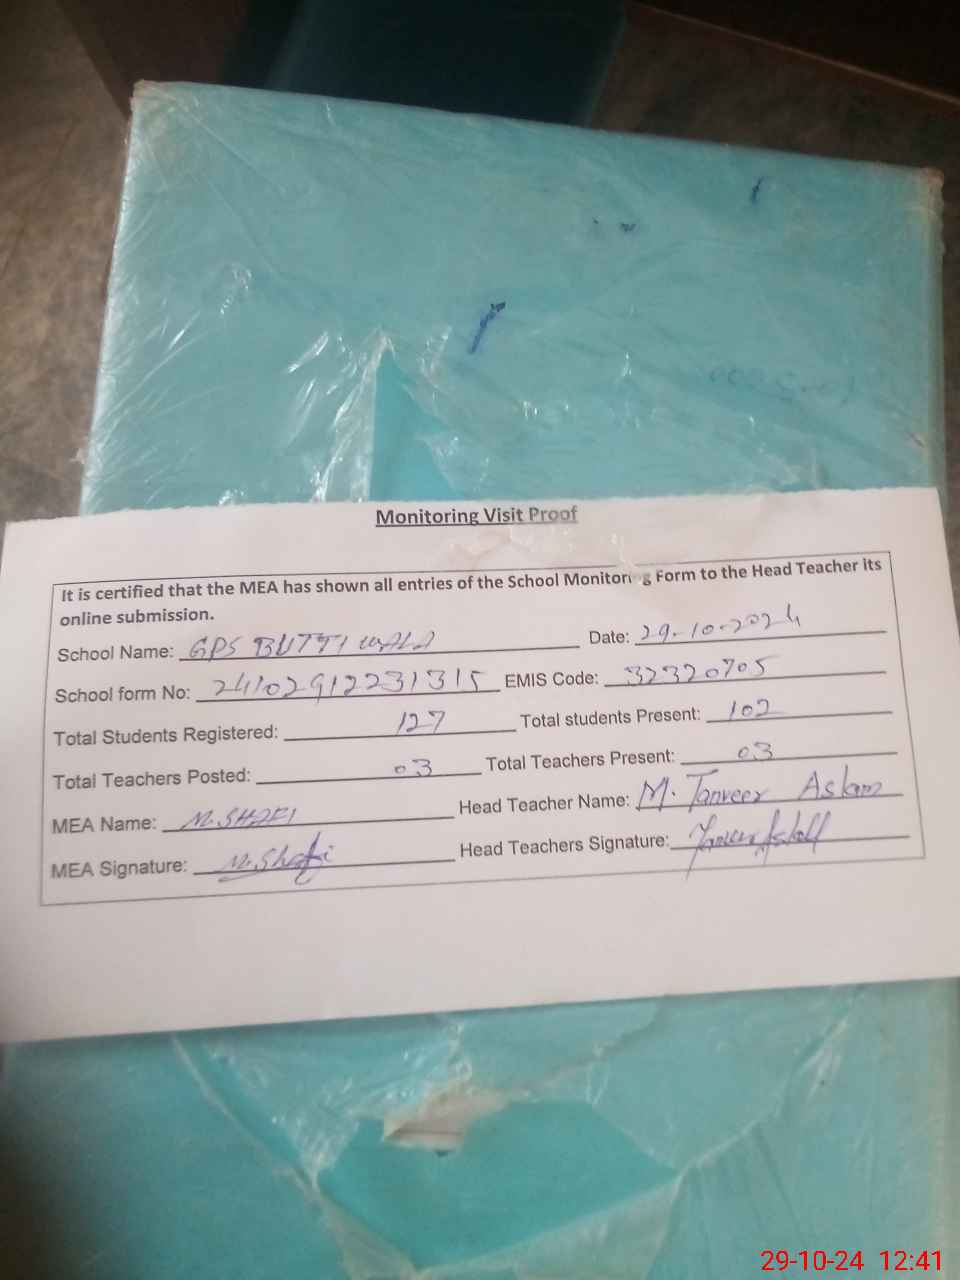 Monitoring Visit Proof
It is certified that the MEA has shown all entries of the School Monitoring Form to the Head Teacher its
online submission.
School Name: GPS BUTTI WALA Date: 29-10-2024
School form No: 24102912231315 EMIS Code: 32320705
Total Students Registered: 127 Total students Present: 102
Total Teachers Posted: 03 Total Teachers Present: 03
MEA Name: M. SHAFI Head Teacher Name: M. Tanveer Aslam
MEA Signature: M. Shafi Head Teachers Signature:
29-10-24 12:41